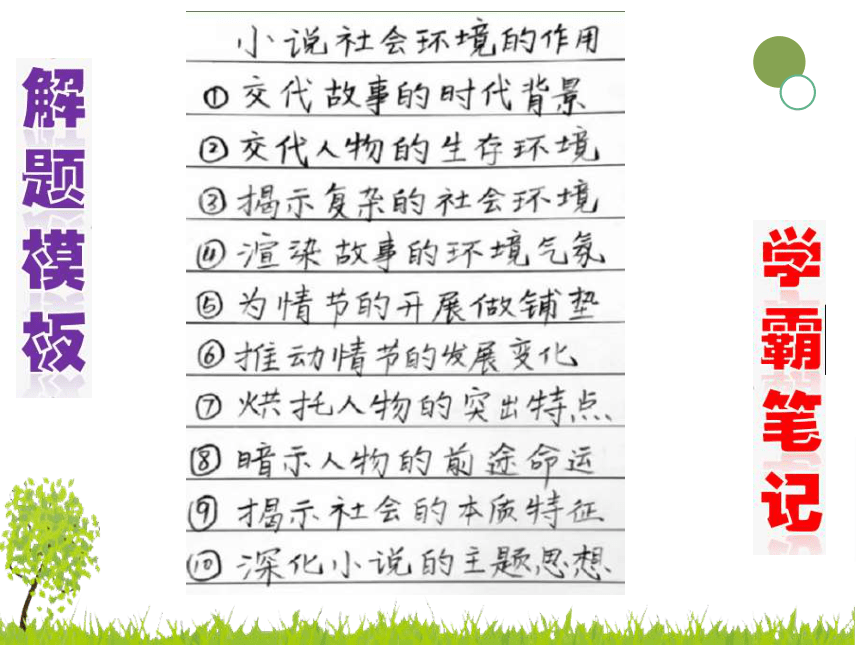 解题模板
小说社会环境的作用
①交代故事的时代背景
②交代人物的生存环境
③揭示复杂的社会环境
④渲染故事的环境气氛
⑤为情节的开展做铺垫
⑥推动情节的发展变化
⑦烘托人物的突出特点
⑧暗示人物的前途命运
⑨揭示社会的本质特征
⑩深化小说的主题思想
学霸笔记